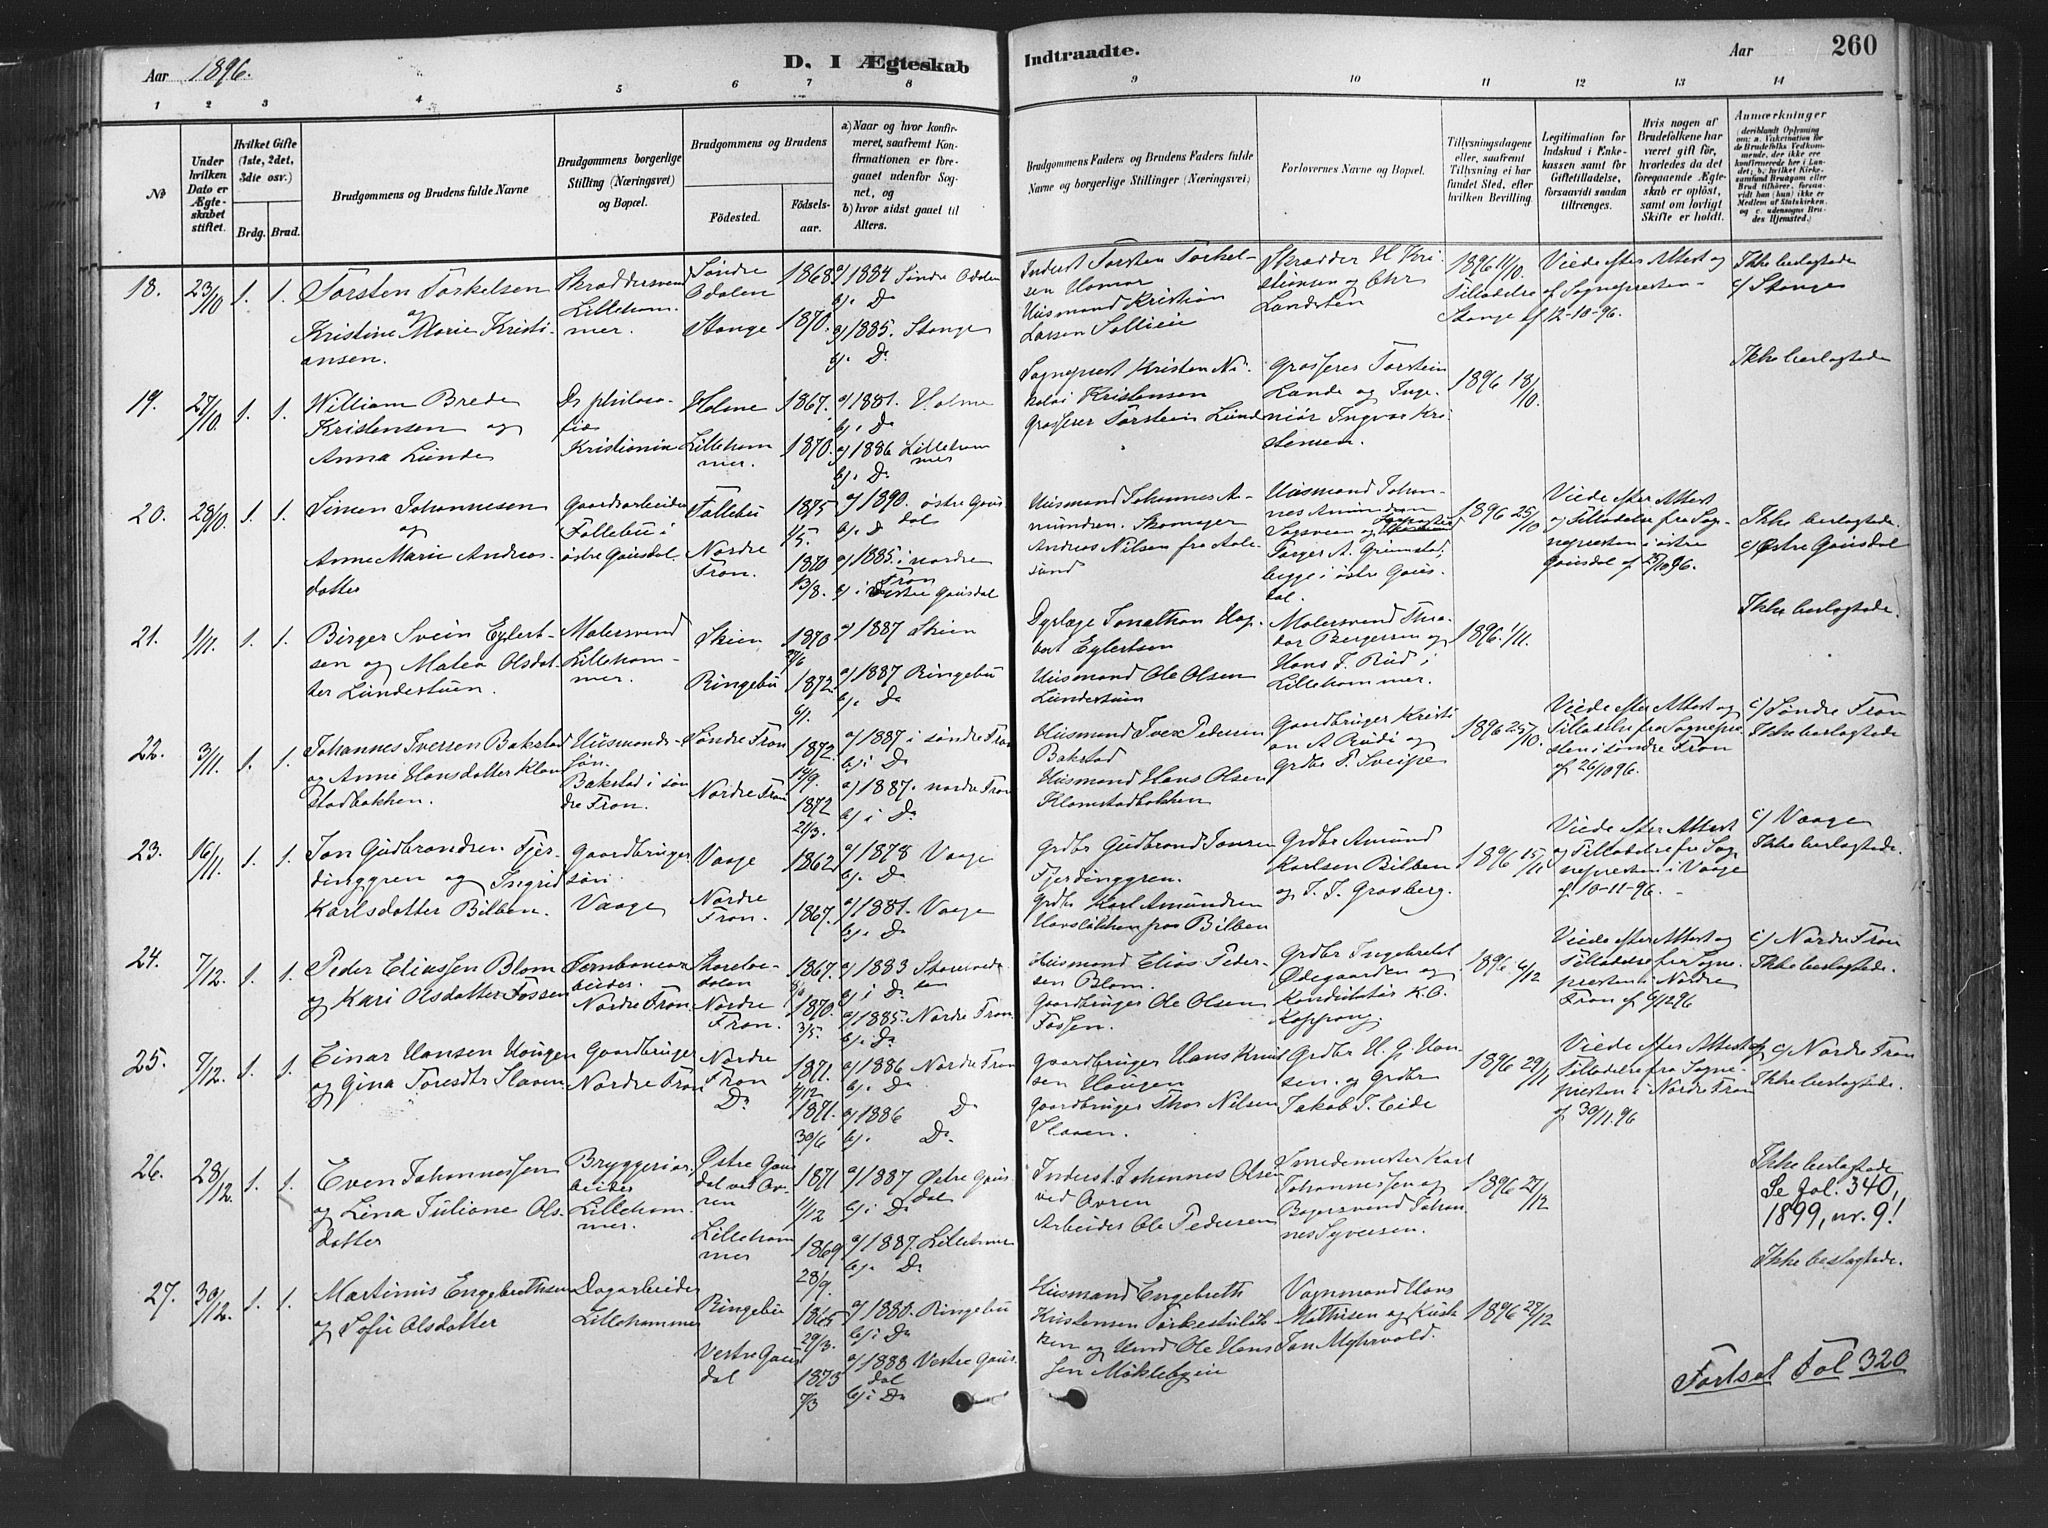 Aar 1896.
D. I Ægteskab
Indtraadte.
Aar 260
1 2 3 4 5 6 7 8 9 10 11 12 13 14
No
Under hvilken Dato er Ægteskabet stiftet.
Hvilket Gifte (1ste, 2det, 3die osv.)
Brdg. Brud.
Brudgommens og Brudens fulde Navne
Brudgommens borgerlige Stilling (Næringsvei) og Bopæl.
Brudgommens og Brudens
Fødested. Fødselsaar.
a) Naar og hvor konfirmeret, saafremt Konfirmationen er foregaaet udenfor Sognet, og
b) hvor sidst gaaet til Alters.
Brudgommens Faders og Brudens Faders fulde Navne og borgerlige Stillinger (Næringsvei)
Forlovernes Navne og Bopæl.
Tillysningsdagene eller, saafremt Tillysning ei har fundet Sted, efter hvilken Bevilling.
Legitimation for Indskud i Enkekassen samt for Giftetilladelse, forsaavidt saadan tiltrænges.
Hvis nogen af Brudefolkene har været gift før, hvorledes da det foregaaende Ægteskab er opløst, samt om lovligt Skifte er holdt.
Anmærkninger (deriblandt Oplysning om: a. Vakcination for de Brudefolks Vedkommende, der ikke ere konfirmerede her i Landet; b. hvilket Kirkesamfund Brudgom eller Brud tilhører, forsaavidt han (hun) ikke er Medlem af Statskirken, og c. udensogns Brudes Hjemsted.)
18. 23/10 1. 1. Torsten Torkelsen og Kristine Marie Kristiansen.
Skræddersvend Lillehammer.
Søndre Odalen 1868 a/ 1884 Søndre Odalen b/. Do
Stange 1870. a/ 1885. Stange b/. Do
Inderst Torsten Torkelsen Hamar
Husmand Kristian Larsen Sollien
Skrædder H Kristiansen og Chr Landsten
1896 11/10. Tilladelse Stange af 12-10-96.
Viede efter Attest og af Sognepresten
Ikke beslægtede c/ Stange
19. 27/10 1. 1. William Brede Kristensen og Anna Lunde
Dr philosofiæ Kristiania
Holme 1867. a/ 1881. Holme b/. Do
Lillehammer. 1870. a/ 1886 Lillehammer b/. Do
Sogneprest Kristen Nikolai Kristensen
Grosserer Torstein Lunde
Grosserer Torstein Lunde og Ingeniør Ingvar Kristensen.
1896 18/10.
Ikke beslægtede
20. 28/10. 1. 1. Simen Johannesen og Anne Marie Andreasdatter
Gaardsarbeider Follebu i østre Gausdal.
Follebu 1875 1/5. a/ 1890. østre Gausdal b/. D
Nordre Fron. 1870 13/8. a/ 1885. i nordre Fron b/. i østre Gausdal
Husmand Johannes Amundsen. Skomager Andreas Nilsen fra Aalesund
Husmand Johannes Amundsen Sagsveen og Torger A. Grimstad, begge i østre Gausdal.
1896 25/10
Viede efter Attest og Tilladelse fra Sognepresten i østre Gausdal af 25/10 96.
Ikke beslægtede. c/ Østre Gausdal
21. 1/11. 1. 1. Birger Svein Eylertsen og Matea Olsdatter Lundestuen.
Malersvend Lillehammer.
Skien 1870 27/6 a/ 1887 Skien
Ringebu 1872 6/1. a/ 1887 Ringebu b/. Do
Dyrlæge Jonathan Habert Eylertsen
Husmand Ole Olsen Lundestuen
Malersvend Theodor Bergersen og Hans J. Rud i Lillehammer.
1896. 1/11.
Ikke beslægtede.
22. 3/11. 1. 1. Johannes Iversen Bakstad og Anne Hansdatter Klomstadbakken.
Husmandssøn. Bakstad i søndre Fron.
Søndre Fron 1872. 14/9. a/ 1887 i søndre Fron b/. i Do
Nordre Fron 1872 21/3. a/ 1887. nordre Fron b/ i Do
Husmand Iver Pedersen Bakstad
Husmand Hans Olsen Klomstadbakken
Gaardbruger Kristian A Rudi og Grdbr P. Sveipe
1896 25/10.
Viede efter Attest og Tilladelse fra Sognepresten i søndre Fron af 26/10 96.
c/ Søndre Fron Ikke beslægtede
23. 16/11. 1. 1. Jon Gudbrandsen Fjerdinggren og Ingrid Karlsdotter Bilben.
Gaardbrugersøn Vaage
Vaage 1862 a/ 1878 Vaage b/. Do
Nordre Fron. 1867. a/ 1881. Vaage b/. Do
Grdbr Gudbrand Jonsen Fjerdinggren.
Grdbr Karl Amundsen Havsløkken fra Bilben
Grdbr Amund Karlsen Bilben og J. J. Grosberg.
1896 15/11
Viede efter Attest og Tilladelse fra Sognepresten i Vaage af 10-11-96.
c/ Vaage Ikke beslægtede.
24. 7/12. 1. 1. Peder Eliassen Blom og Kari Olsdatter Fossen
Jernbanearbeider. Nordre Fron
Storelvedalen 1867. a/ 1883 Storelvedalen b/ i Do
Nordre Fron. 1870. 3/5. a/ 1885. Nordre Fron b/. Do
Husmand Elias Pedersen Blom.
Gaardbruger Ole Olsen Fossen.
Grdbr Ingebret Ødegaarden og Konduktør K. O. Koppang.
1896. 6/12
Viede efter Attest og Tilladelse fra Sognepresten i Nordre Fron af 6/12 96
c/ Nordre Fron Ikke beslægtede.
25. 7/12. 1. 1. Einar Hansen Haugen og Gina Toresdtr Slaaen.
Gaardbruger Nordre Fron
Nordre Fron 1871. 4/12 a/ 1886 Nordre Fron b/. Do
Do 1871. 30/6 a/ 1886 Do b/. Do
Gaardbruger Hans Knudsen Haugen
Gaardbruger Thor Nilsen Slaaen.
Grdbr H. G. Hansen. og Grdbr Jakob J. Eide
1896 29/11
Viede efter Attest og Tilladelse fra Sognepresten i Nordre Fron af 30/11 96
c/ Nordre Fron Ikke beslægtede.
26. 28/12. 1. 1. Even Johannessen og Lina Juliane Olsdatter
Bryggeriarbeider Lillehammer.
Østre Gausdal ved Avren 1871 1/12 a/ 1887 Østre Gausdal b/. i Do
Lillehammer 1869 28/9. a/ 1887. Lillehammer b/. Do
Inderst. Johannes Olsen ved Avren
Arbeider Ole Pedersen
Smedemester Karl Johannessen og Bagersvend Johannes Syversen.
1896 27/12
Ikke beslægtede
Se fol. 340, 1899, nr. 9!
27. 30/12. 1. 1. Martinus Engebrethsen og Sofie Olsdatter
Dagarbeider Lillehammer
Ringebu 1865 29/3. a/ 1880. Ringebu b/. i Do
Vestre Gausdal 1873 7/3 a/ 1888 Vestre Gausdal b/. i Do
Husmand Engebreth Kristensen Torkestuløkken og Hmd Ole Hansen Møklebyeie
Vognmand Hans Mathisen og Kristian Myhrvold.
1896 27/12
Ikke beslægtede.
Fortsat Fol 320